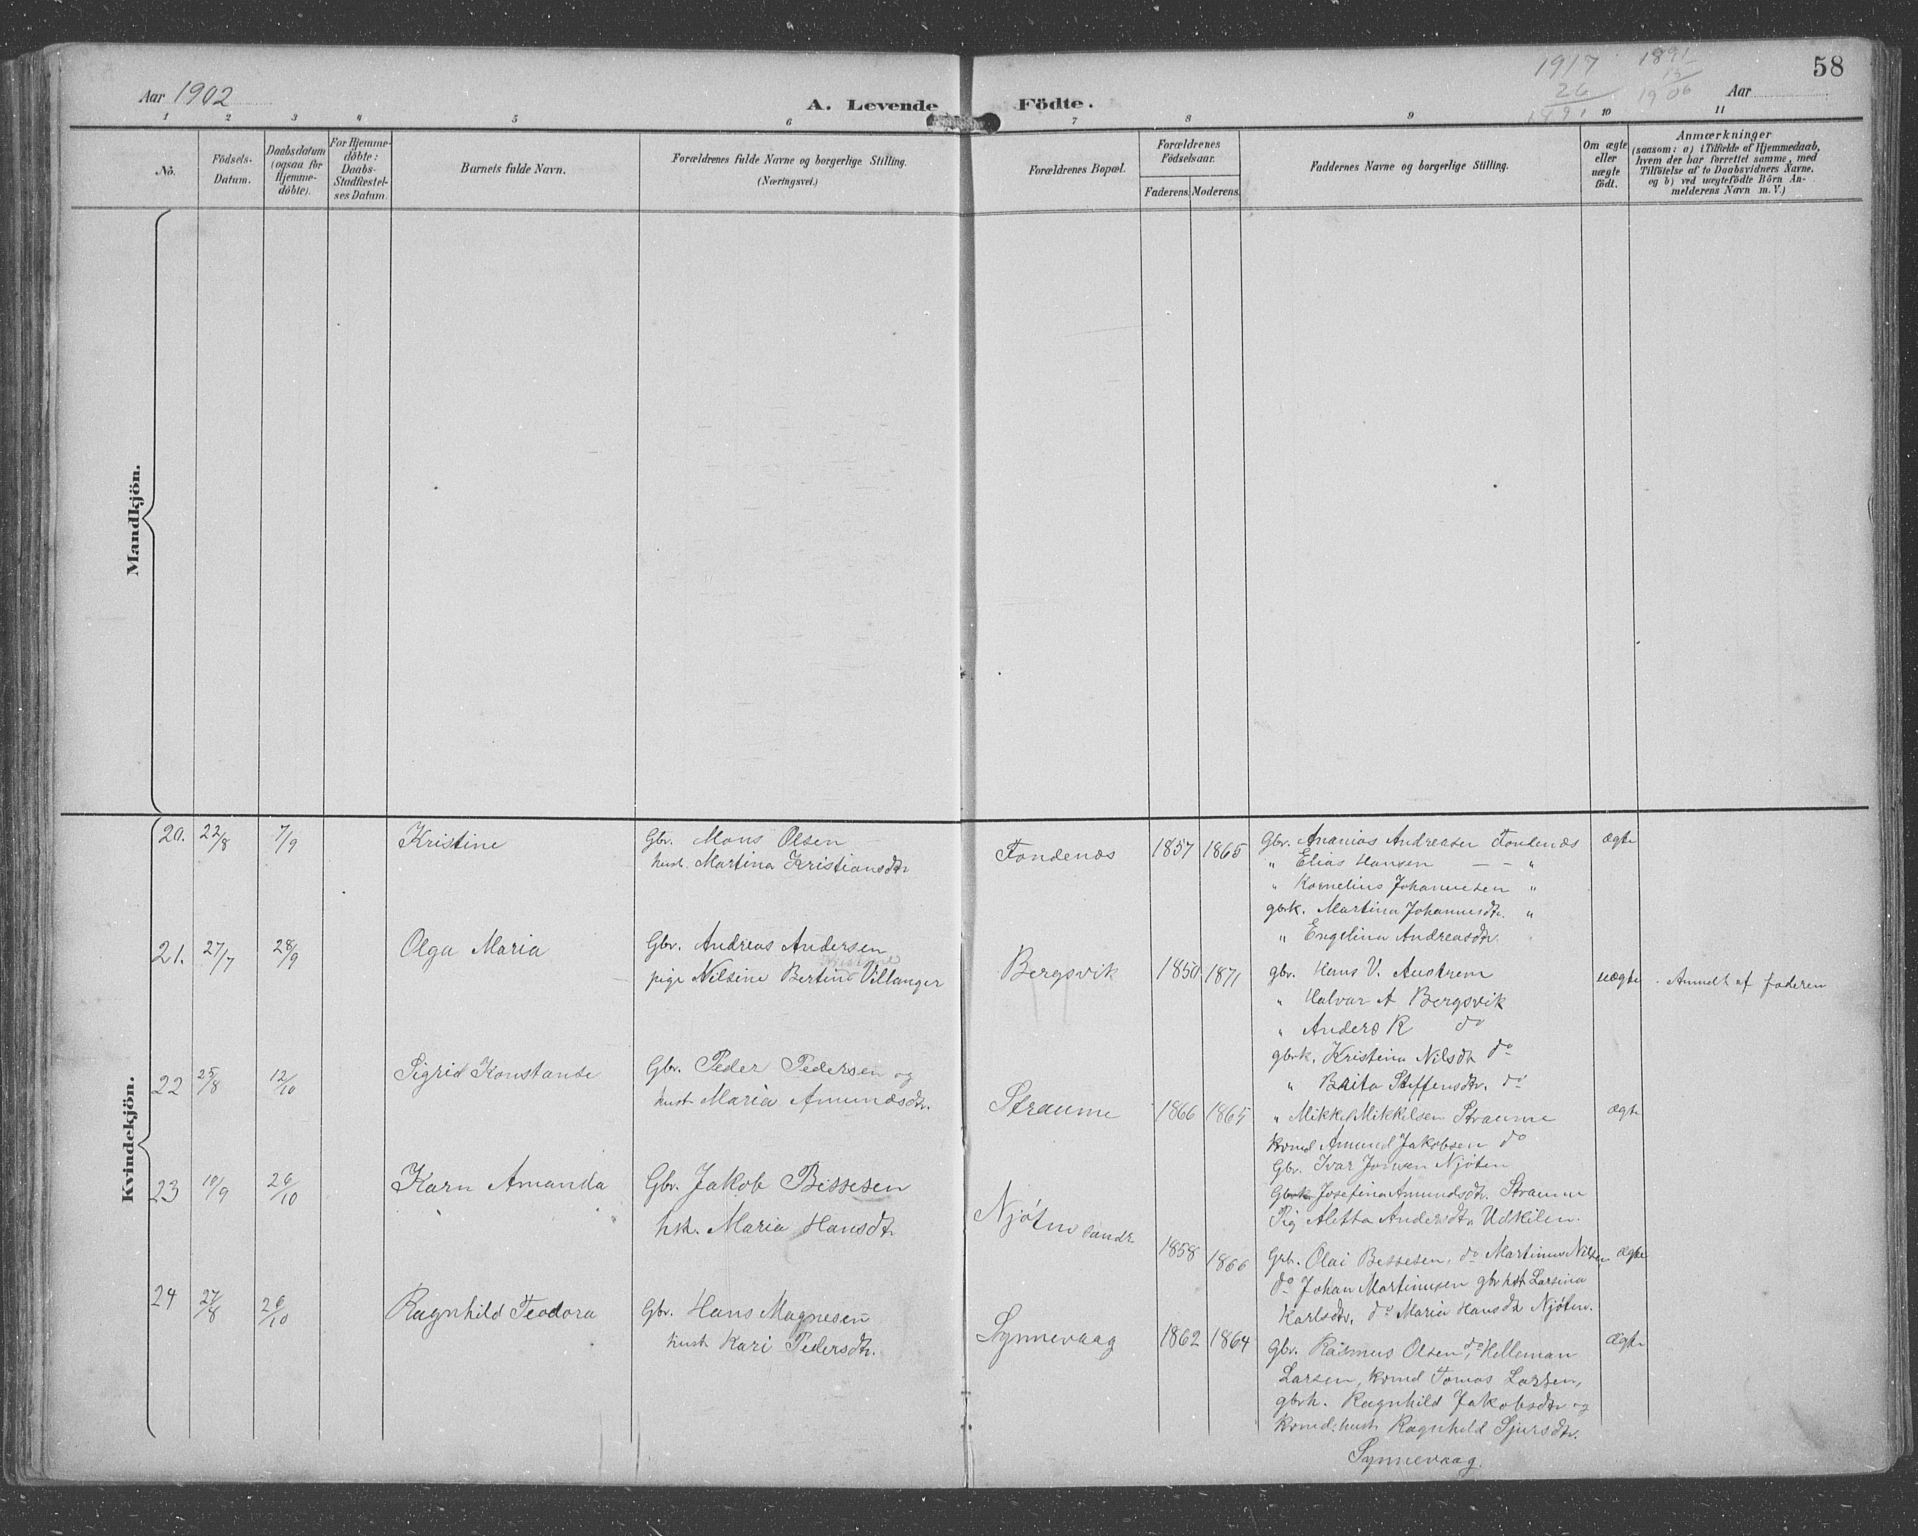 Aar 1902
A. Levende Födte.
1917 1891
26 15
1891 1906
Aar
58
1 2 3 4 5 6 7 8 9 10 11
No.
Födsels-
Datum.
Daabsdatum
(ogsaa for
Hjemme-
döbte).
For Hjemme-
döbte:
Daabs-
Stadfæstel-
ses Datum.
Barnets fulde Navn.
Forældrenes fulde Navne og borgerlige Stilling.
(Næringsvei.)
Forældrenes Bopæl.
Forældrenes
Födselsaar.
Faderens. Moderens.
Faddernes Navne og borgerlige Stilling.
Om ægte
eller
uægte
födt.
Anmærkninger
(saasom: a) i Tilfælde af Hjemmedaab,
hvem der har forrettet samme, med
Tilföielse af to Daabsvidners Navne.
og b) ved uægtefödte Börn An-
melderens Navn m. V.)
Mandkjön.
Kvindekjön.
20. 22/8 7/9 Kristine
Gbr. Mons Olsen
hust. Martina Kristiansdtr
Fondenæs 1857 1865
Gbr. Ananias Andreasen Fondenæs
" Elias Hansen — — "
" Kornelius Johannesen "
gbrk. Martina Johannesdtr. "
" Engelina Andreasdtr.
ægte
21. 27/7 28/9 Olga Maria
Gbr. Andreas Andersen
pige Nilsine Bertine Villanger
Bergsvik 1850 1871
gbr. Hans V. Austrem
" Halvar A Bergsvik
" Anders R do
gbrk. Kristina Nilsdtr do
" Brita Steffensdtr. do
uægte
Anmdt af faderen
22 25/8 12/10 Sigrid Konstanse
Gbr. Peder Pedersen og
hust. Maria Amundsdtr.
Straume 1866 1865
" Mikkel Mikkelsen Straume
kvmd Amund Jakobsen do
Gbr. Ivar Jonsen Njöten
Gbrk. Josefina Amundsdtr. Straume
Pig Aletta Andersdtr Udkilen.
ægte
23 10/9 26/10 Karn Amanda
Gbr. Jakob Bessesen
hsk. Maria Hansdtr.
Njöten søndr. 1858 1866
Grb. Olai Bessesen, do Martinus Nilsen
do Johan Martinusen gbrhst Larsina
Karlsdtr, do Maria Hansdtr Njöten.
ægte
24 27/8 26/10 Ragnhild Teodora
Gbr. Hans Magnesen
hust Kari Pedersdtr.
Synnevaag 1862 1864
Gbr. Rasmus Olsen, do Helleman
Larsen, kvmd Tomas Larsen,
gbrh. Ragnhild Jakobsdtr og
kvmd. hust. Ragnhild Sjursdtr.
Synnevaag.
ægte